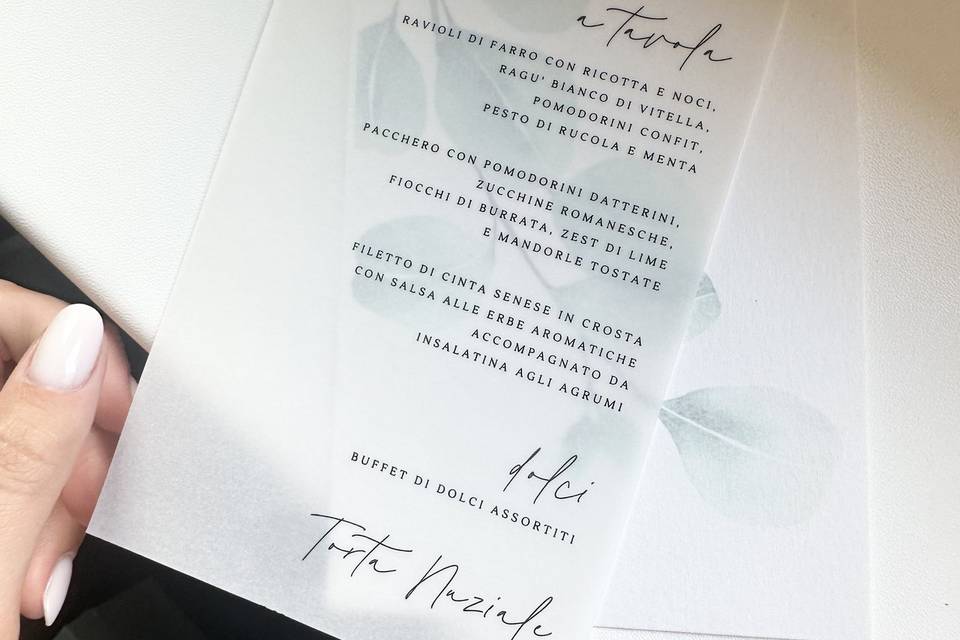 a tavola
RAVIOLI DI FARRO CON RICOTTA E NOCI,
RAGU' BIANCO DI VITELLA,
POMODORINI CONFIT,
PESTO DI RUCOLA E MENTA
PACCHERO CON POMODORINI DATTERINI,
ZUCCHINE ROMANESCHE,
FIOCCHI DI BURRATA, ZEST DI LIME
E MANDORLE TOSTATE
FILETTO DI CINTA SENESE IN CROSTA
CON SALSA ALLE ERBE AROMATICHE
ACCOMPAGNATO DA
INSALATINA AGLI AGRUMI
dolci
BUFFET DI DOLCI ASSORTITI
Torta Nuziale